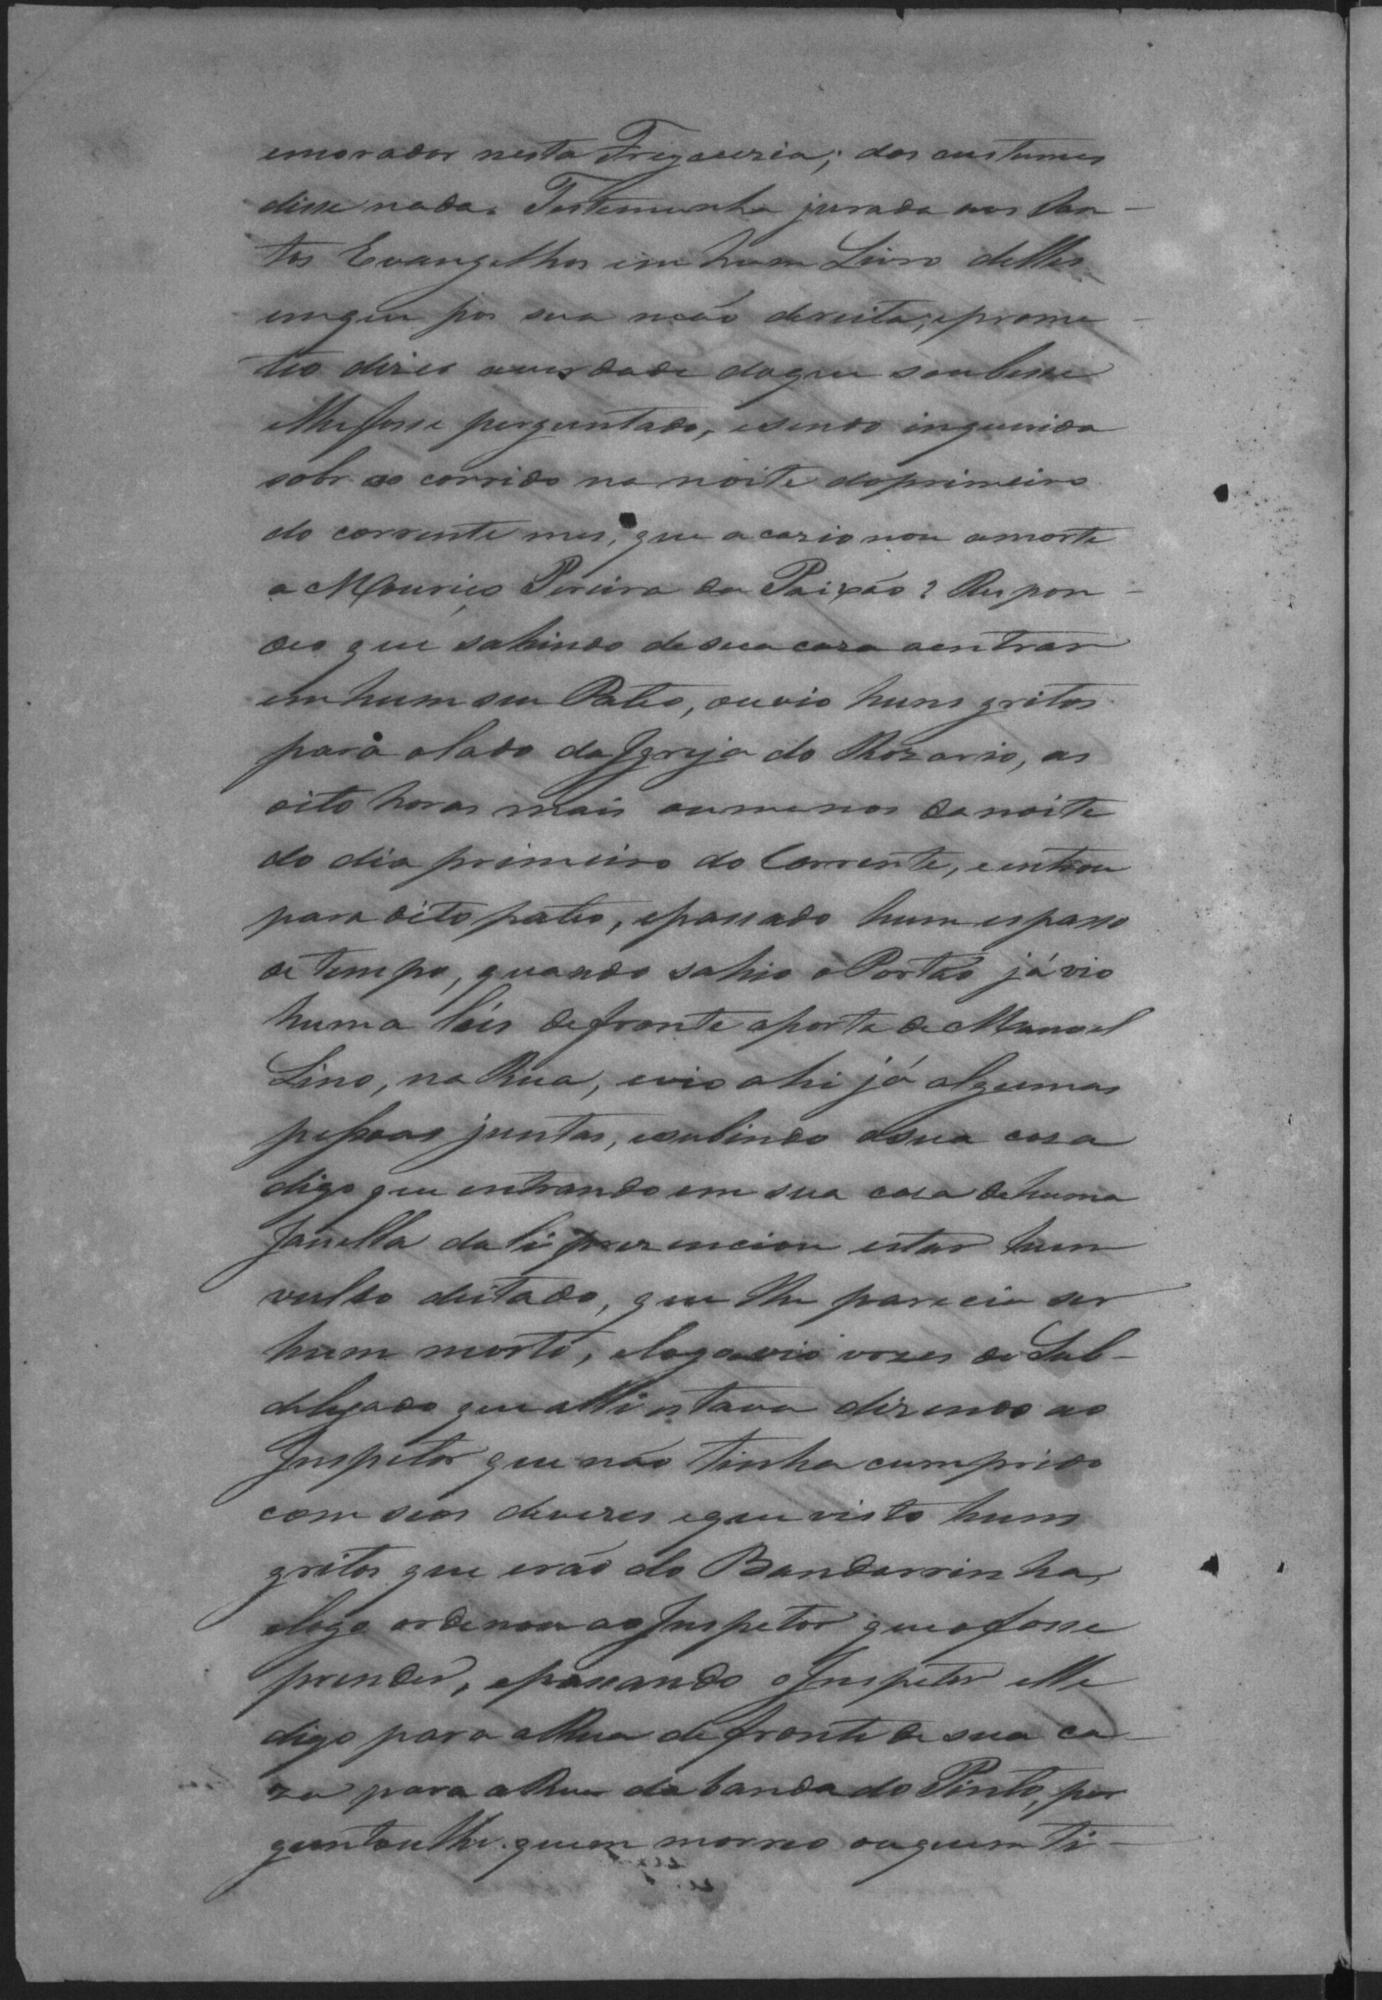 emorador nesta Fregueria; dos custumes
disse nada. Testemunha jurada aos San-
tos Evangelhos em hum Livro delles
emque pos sua mão dereita, eprome-
teo dizer averdade doque soubesse
elhe fosse perguntado, esendo inquirida
sobre o corrido na noite doprimeiro
do corrente mes, que acazionou amorte
a Mauriço Pereira da Paixão? Respon-
deo que sahindo desua caza aentrar
em hum seu Pateo, ouvio huns gritos
para olado da Igreja do Rozario, as
oito horas mais oumenos danoite
do dia primeiro do Corrente, eentrou
para dito pateo, epassado hum espasso
de tempo, quando sahio o Portão já vio
huma lúis defronte aporta de Manoel
Lino, na Rua, evio ahi já algumas
pessoas juntas, esubindo asua casa
digo que entrando em sua casa dehuma
Janella dali prezenciou estar hum
vulto deitado, que lhe parecia ser
hum morto, elogo vozes do Sub-
delegado quealli estava dizendo ao
Inspetor que não tinha cumprido
com seos deveres eque visto huns
gritos que erão do Bandarrinha,
elogo ordenou ao Inspetor queofosse
prender, epassando o Inspetor elle
digo para aRua defronte de sua ca-
za para aRua da banda do Pinto, per
guntoulhe quem morreo ouquem ti-